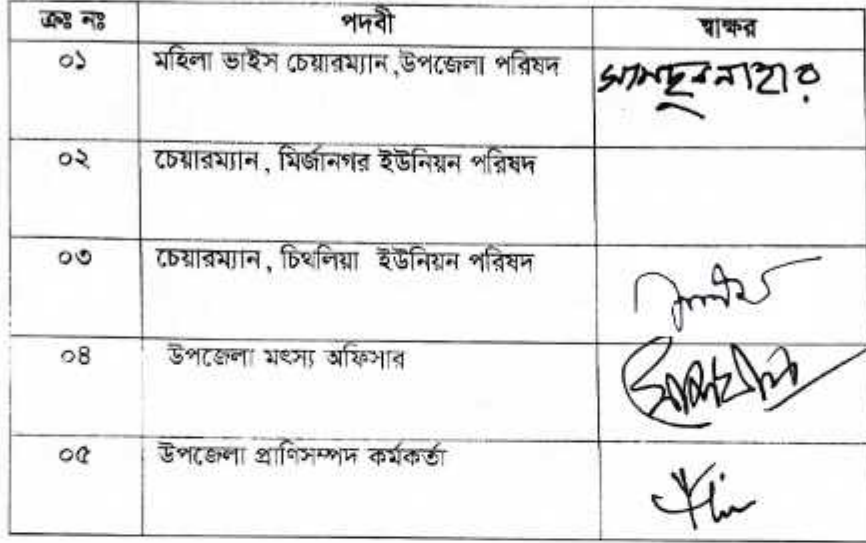 ক্রঃ নঃ পদবী স্বাক্ষর
০১ মহিলা ভাইস চেয়ারম্যান,উপজেলা পরিষদ সামছুননাহার
০২ চেয়ারম্যান, মির্জানগর ইউনিয়ন পরিষদ
০৩ চেয়ারম্যান, চিথলিয়া ইউনিয়ন পরিষদ
০৪ উপজেলা মৎস্য অফিসার
০৫ উপজেলা প্রাণিসম্পদ কর্মকর্তা